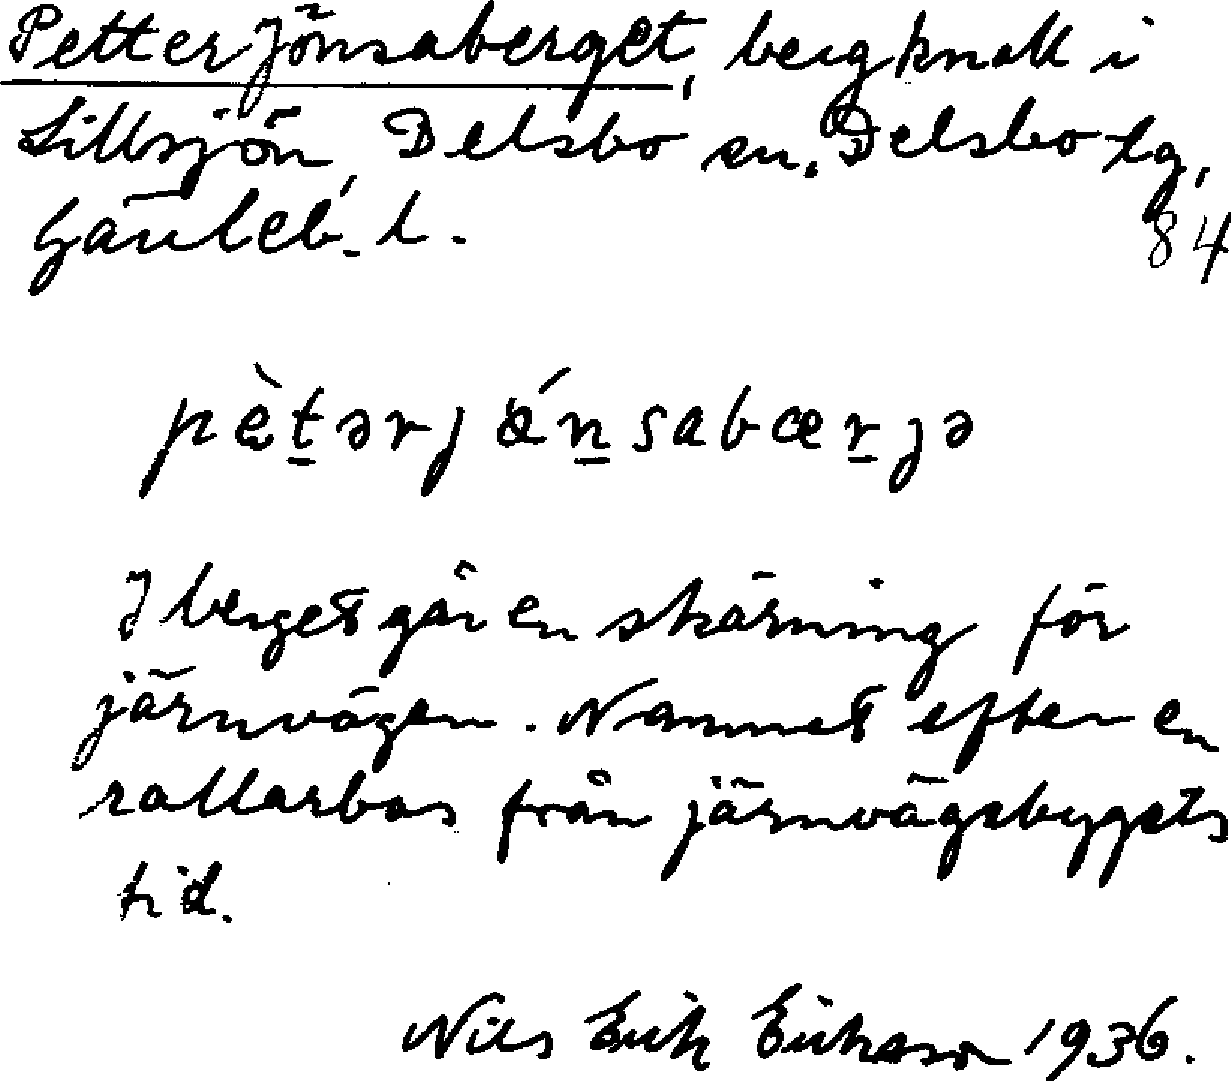 Petter Jönsaberget, bergknall i
Lillsjön, Delsbo sn. Delsbo tg,
Gävleb. l.
84
pètərjǿnsabærjə
I berget går en skärning för
järnvägen. Namnet efter en
rallarbas från järnvägsbyggets
tid.
Nils Erik Eriksson 1936.